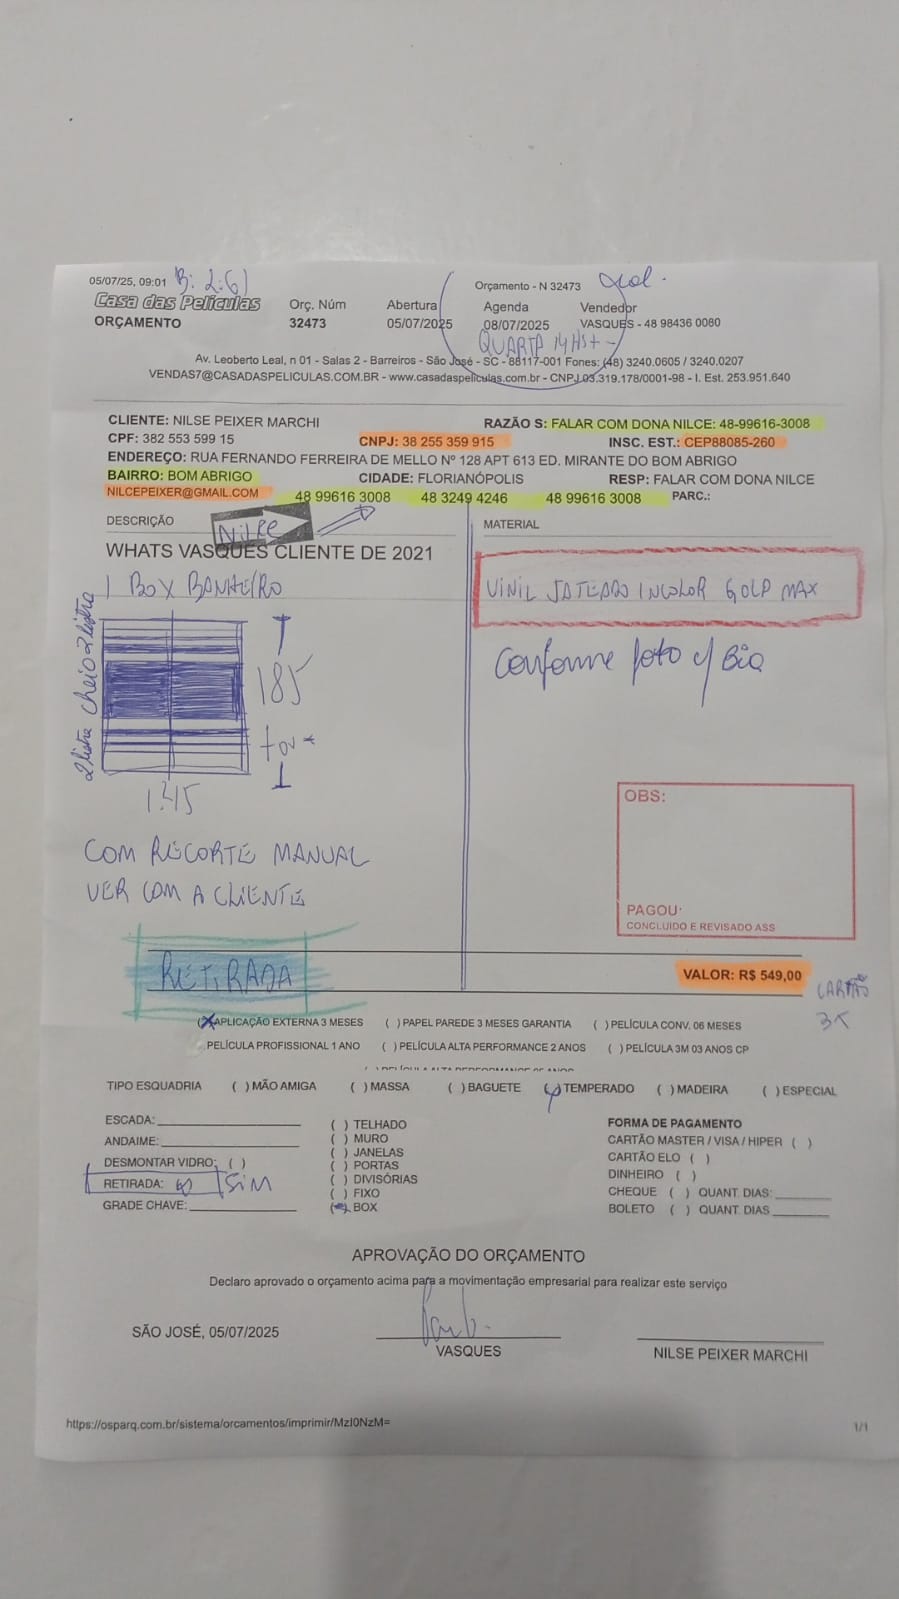 05/07/25, 09:01
Orçamento - N 32473
Casa das Películas
ORÇAMENTO
Orç. Núm
32473
Abertura
05/07/2025
Agenda
08/07/2025
Vendedor
VASQUES - 48 98436 0080
QUARTA 14HS
Av. Leoberto Leal, n 01 - Salas 2 - Barreiros - São José - SC - 88117-001 Fones: (48) 3240.0605 / 3240.0207
VENDAS7@CASADASPELICULAS.COM.BR - www.casadaspeliculas.com.br - CNPJ 03.319.178/0001-98 - I. Est. 253.951.640
CLIENTE: NILSE PEIXER MARCHI RAZÃO S: FALAR COM DONA NILCE: 48-99616-3008
CPF: 382 553 599 15 CNPJ: 38 255 359 915 INSC. EST.: CEP88085-260
ENDEREÇO: RUA FERNANDO FERREIRA DE MELLO Nº 128 APT 613 ED. MIRANTE DO BOM ABRIGO
BAIRRO: BOM ABRIGO CIDADE: FLORIANÓPOLIS RESP: FALAR COM DONA NILCE
NILCEPEIXER@GMAIL.COM 48 99616 3008 48 3249 4246 48 99616 3008 PARC.:
DESCRIÇÃO
Nilce
MATERIAL
WHATS VASQUES CLIENTE DE 2021
1 BOX BANHEIRO
VINIL JATEADO INCOLOR GOLD MAX
Conforme foto c/ Bia
2 listra cheio 2 listra
185
1.45
COM RECORTE MANUAL
VER COM A CLIENTE
OBS:
PAGOU:
CONCLUIDO E REVISADO ASS
RETIRADA
VALOR: R$ 549,00
CARTÃO
3X
(X) APLICAÇÃO EXTERNA 3 MESES ( ) PAPEL PAREDE 3 MESES GARANTIA ( ) PELÍCULA CONV. 06 MESES
PELÍCULA PROFISSIONAL 1 ANO ( ) PELÍCULA ALTA PERFORMANCE 2 ANOS ( ) PELÍCULA 3M 03 ANOS CP
TIPO ESQUADRIA ( ) MÃO AMIGA ( ) MASSA ( ) BAGUETE ( ) TEMPERADO ( ) MADEIRA ( ) ESPECIAL
ESCADA:
ANDAIME:
DESMONTAR VIDRO: ( )
RETIRADA: SIM
GRADE CHAVE:
( ) TELHADO
( ) MURO
( ) JANELAS
( ) PORTAS
( ) DIVISÓRIAS
( ) FIXO
( ) BOX
FORMA DE PAGAMENTO
CARTÃO MASTER / VISA / HIPER ( )
CARTÃO ELO ( )
DINHEIRO ( )
CHEQUE ( ) QUANT. DIAS:
BOLETO ( ) QUANT. DIAS
APROVAÇÃO DO ORÇAMENTO
Declaro aprovado o orçamento acima para a movimentação empresarial para realizar este serviço
SÃO JOSÉ, 05/07/2025
VASQUES
NILSE PEIXER MARCHI
https://osparq.com.br/sistema/orcamentos/imprimir/MzI0NzM=
1/1